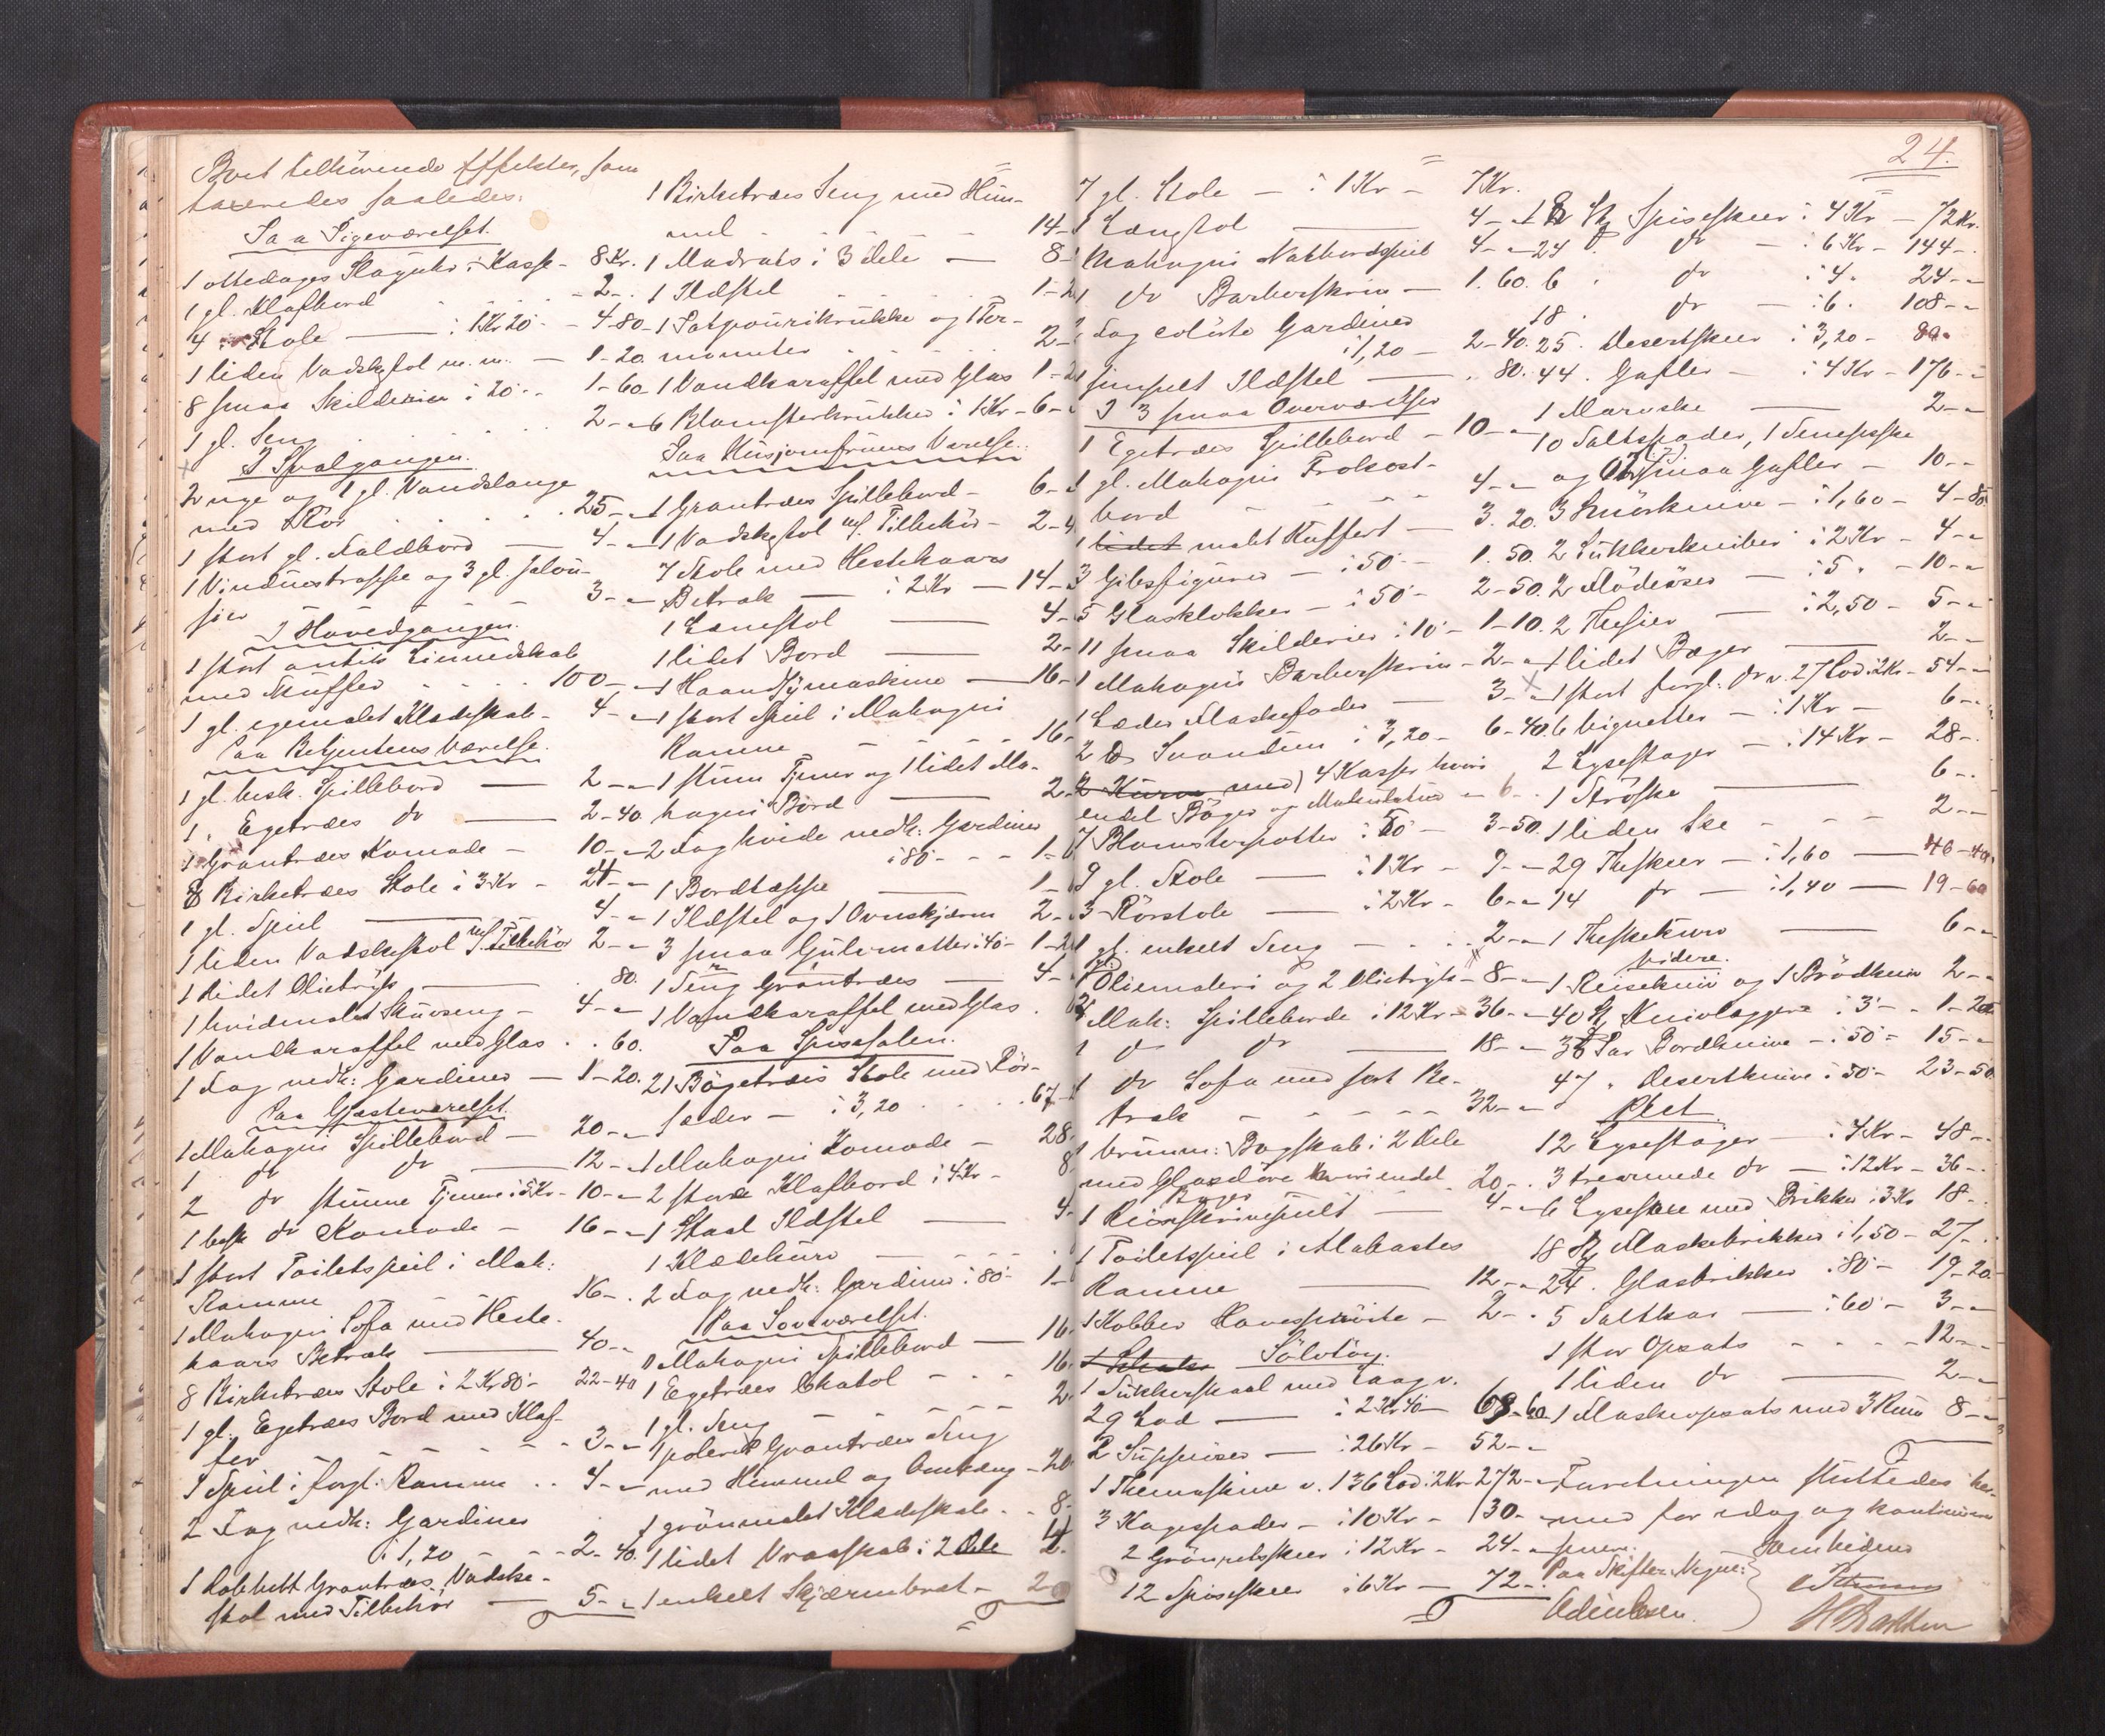 Boet tilhörende Effekter, som
taxeredes saaledes:
Paa Pigeværelset.
1 ottedages Slaguhr i Kasse - 8 Kr.
1 gl. Klafbord - 2 -
4 " Stole - i 1 Kr 20 - 4-80
1 liden Vadskstol m.m. - 1-20.
8 smaa Skilderier i 20 - 1-60
1 gl. Seng - 2 - "
I Svalgangen.
2 nye og 1 gl. Vandslange
med Rör - 25 - "
1 stort gl. Foldbord - 4 - "
1 Vinduestrappe og 3 gl. Jalou-
sier - 3 - "
I Hovedgangen.
1 stort antik Linnedskab
med Skuffer - 100 - "
1 gl. egemalet Klædeskab - 4 - "
Paa Betjentens Værelse.
1 gl. besk. Spillebord - 2 - "
1 " Egetræes do - 2-40.
1 Grantræes Komode - 10 - "
8 Birketræes Stole i 3 Kr - 24 - "
1 gl. Speil - 4 - "
1 liden Vadskestol m/ Tilbehör 2 - "
1 lidet Olietryk - 80.
1 hvidmalet Skuvseng - 4 - "
1 Vandkaraffel med Glas - 60.
1 Fag nedh: Gardiner - 1-20.
Paa Gjesteværelset.
1 Mahogni Spillebord - 20 - "
1 do do - 12 - "
2 do stumme Tjenere i 5 Kr - 10 - "
1 besk do Komode - 16 - "
1 stort Toiletspeil i Mah:
Ramme - 16 -
1 Mahogni Sofa med Heste-
haars Betræk - 40 - "
8 Birketræes Stole i 2 Kr 80 - 22-40
1 gl. Egetræes Bord med Klaf-
fer - 3 - "
1 Speil i forgl: Ramme - 4 - "
2 Fag nedh: Gardiner
i 1,20 - 2-40.
1 dobbelt Grantræes Vadske-
stol med Tilbehör - 5 - "
1 Birketræes Seng med Him-
mel - 14 -
1 Madrats i 3 dele - 8 -
1 Ildstel - 1-2
1 Potpourikrukke og 1 Ter-
mometer - 2 -
1 Vandkaraffel med Glas 1-2
6 Blomsterkrukker i 1 Kr - 6 -
Paa Husjomfruens Værelse.
1 Grantræes Spillebord - 6 -
1 Vadskestol m/ Tilbehör - 2-4
7 Stole med Hestehaars
Betræk - i 2 Kr - 14 -
1 Lænestol - 4 -
1 lidet Bord - 2 -
1 Haandsymaskine - 16 -
1 stort Speil i Mahogni
Ramme - 16 -
1 stum Tjener og 1 lidet Ma-
hogni Bord - 2
2 Fag hvide nedh: Gardiner
i 80 - 1-6
1 Bordtæppe - 1 -
1 Ildstel og 1 Ovnskjærm 2 -
3 smaa Gulvmatter i 40 - 1-2
1 Seng Grantræes - 4 -
1 Vandkaraffel med Glas
Paa Spisesalen.
21 Bögetræes Stole med Rör-
sæder - i 3,20 - 67-2
1 Mahogni Komode - 28 -
2 store Klafbord i 4 Kr - 8
1 Staal Ildstel - 4 -
1 Klædekurv
2 Fag nedh: Gardiner i 80 - 1-6
Paa Soveværelset.
1 Mahogni Spillebord - 16 -
1 Egetræes Chatol - 16 -
1 gl. Seng - 2 -
1 poleret Grantræes Seng
med Himmel og Omhæng - 20
1 grönmalet Klædeskab - 8 -
1 lidet Vraaskab i 2 Dele 4
1 enkelt Skjærmbræt - 2
24.
7 gl. Stole - i 1 Kr - 7 Kr.
1 Lænestol - 4 - "
1 Mahogni Natbordspeil 4 - "
1 do Barberskrin - 1.60.
1 Fag colörte Gardiner
i 1,20 - 2-40.
1 simpelt Ildstel - 80.
I 3 smaa Overværelser
1 Egetræes Spillebord - 10 - "
1 gl. Mahogni Frokost-
bord - 4 - "
1 lidet malet Kuffert - 3.20.
3 Gibsfigurer - i 50 - 1.50.
5 Glasklokker - i 50 - 2-50.
11 smaa Skilderier i 10 - 1-10.
1 Mahogni Barberskrin - 2 - "
1 Læder Flaskefoder - 3 - "
2 ℔ Svandun i 3,20 - 6-40.
2 Kurve med) 4 Kasser hvori
endel Böger og Makulatur - 6 -
7 Blomsterpotter i 50 - 3-50.
9 gl. Stole - i 1 Kr - 9 - "
3 Rörstole - i 2 Kr - 6 - "
1 gl. enkelt Seng - 2 - "
1 Oliemaleri og 2 Olietryk - 8 - "
3 Mah: Spilleborde i 12 Kr - 36 - "
1 do do - 18 - "
1 do Sofa med sort Be-
træk - 32 - "
1 brunm: Bogskab i 2 Dele
med Glasdöre hvori endel 20 - "
Böger
1 Reiseskrivepult - 4 - "
1 Toiletspeil i Alabaster
Ramme - 12 - "
1 Kobber Havespröite - 2 - "
Sölvtöy.
1 Sukkerskaal med Laag v.
29 Lod - i 2 Kr 40 - 69-60
2 Supöser - i 26 Kr - 52 - "
1 Themaskine v. 136 Lod i 2 Kr 272 - "
3 Kagespader - i 10 Kr - 30 - "
2 Grönnetskeer i 12 Kr - 24 - "
12 Spiseskeer i 6 Kr - 72 -
18 St Spiseskeer i 4 Kr - 72 Kr.
24 do - i 6 Kr - 144 -
6 do i 4 " 24 - "
18 do - i 6 " 108 - "
25 " Desertskeer i 3,20 - 80 "
44 " Gafler - i 4 Kr - 176 - "
1 Marvske - 2 - "
10 Saltspader, 1 Senepsske
og smaa Gafler - 10 - "
3 Smörknive - i 1,60 - 4-80
2 Sukkerkniber i 2 Kr - 4 - "
2 Flödeöser - i 5 " - 10 - "
2 Thesier - i 2,50 - 5 - "
1 lidet Bæger - 2 - "
1 stort forgl: do v. 27 Lod i 2 Kr - 54 - "
6 Vignetter - i 1 Kr - 6 - "
2 Lysestager - i 14 Kr - 28 -
1 Ströske - 6 -
1 liden Ske - 2 -
29 Theskeer - i 1,60 - 46-40.
14 do - i 1,40 - 19-60
1 Theskekurv - 6 - "
videre.
1 Reisekniv og 1 Brödkniv 2 - "
40 St Knivlæggere i 3 - 1-20
30 Par Bordknive - i 50 - 15 - "
47 " Desertknive i 50 - 23-50
Plet
12 Lysestager - i 4 Kr - 48 - "
3 trearmede do - i 12 Kr - 36 -
6 Lysesaxe med Brikker i 3 Kr 18 -
18 St Flaskebrikker i 1,50 - 27 -
24. Glasbrikker i 80 - 19-20
5 Saltkar - i 60 - 3 - "
1 stor Opsats - 12 - "
1 liden do - 2 - "
1 Flaskeopsats med 3 Rum 8 - "
Forretningen sluttedes her-
med for idag og kontinueres
senere.
Paa Skifter. Vegne: